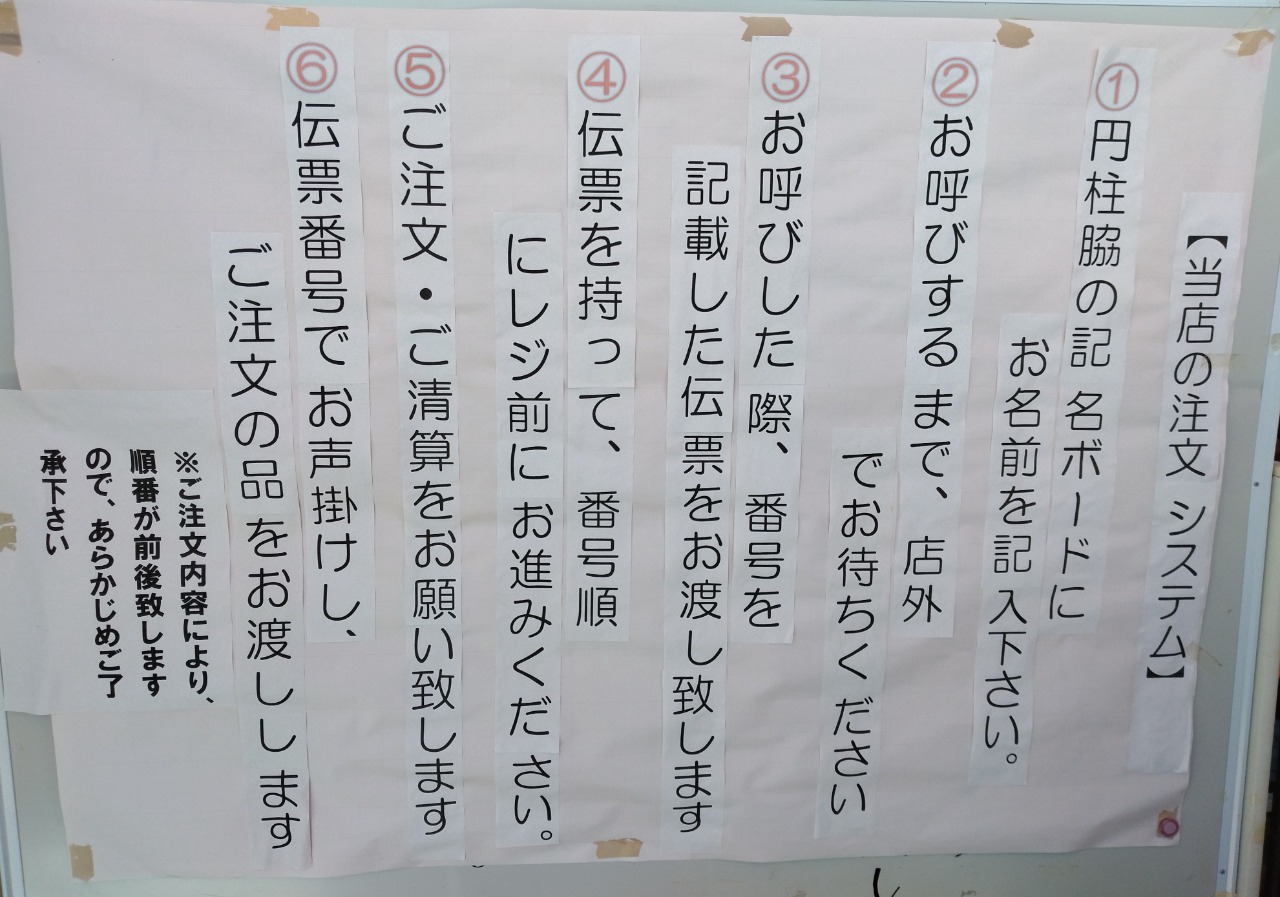 【当店の注文システム】
①円柱脇の記名ボードに
お名前を記入下さい。
②お呼びするまで、店外
でお待ちください
③お呼びした際、番号を
記載した伝票をお渡し致します
④伝票を持って、番号順
にレジ前にお進みください。
⑤ご注文・ご清算をお願い致します
⑥伝票番号でお声掛けし、
ご注文の品をお渡しします
※ご注文内容により、
順番が前後致します
ので、あらかじめご了
承下さい